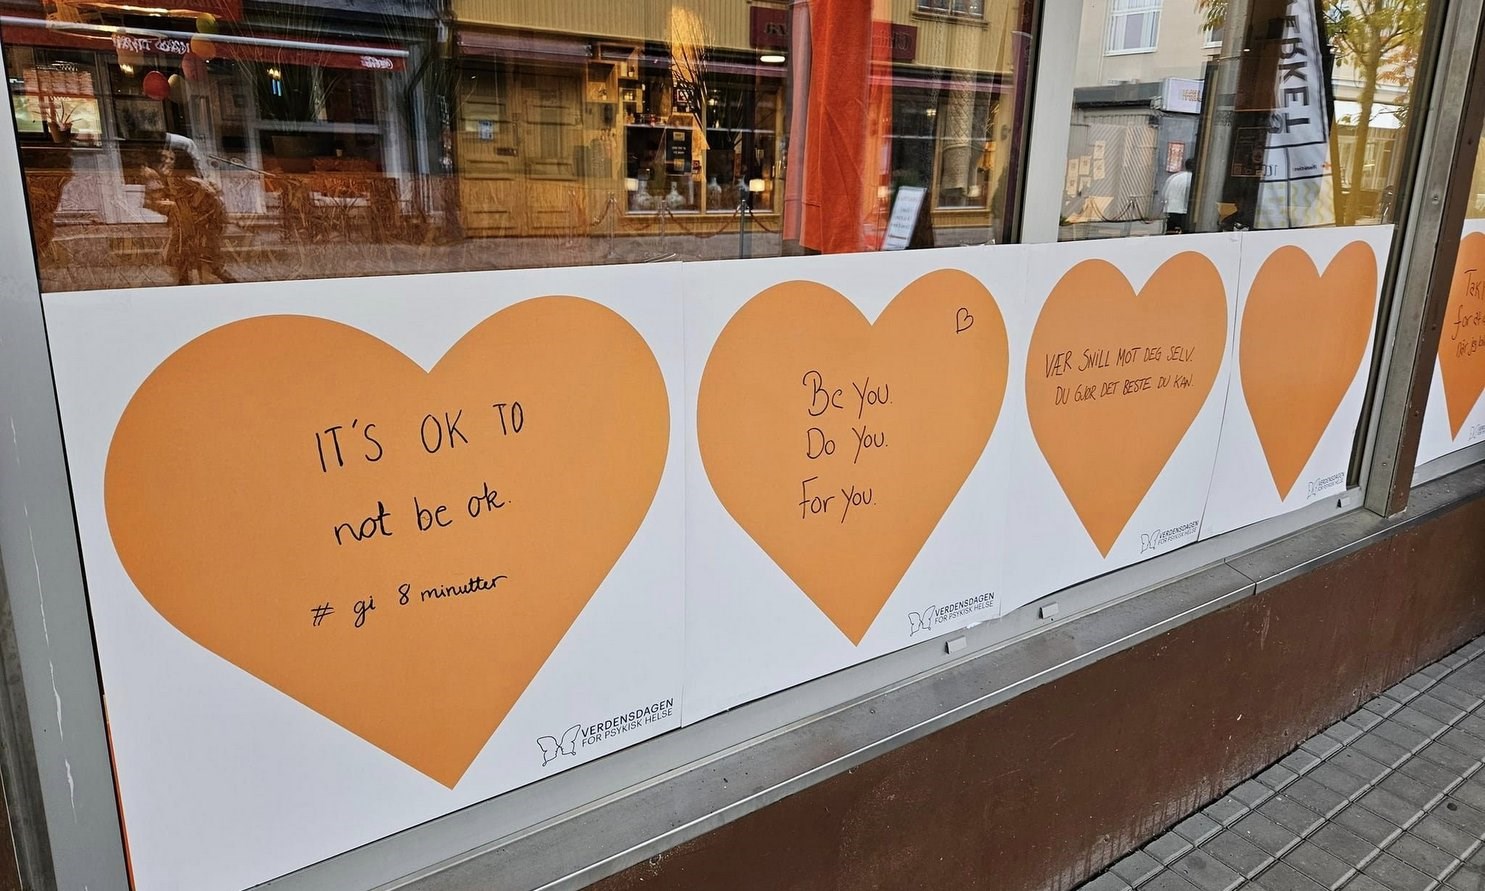 IT'S OK TO
not be ok.
# gi 8 minutter
VERDENSDAGEN
FOR PSYKISK HELSE
Be You.
Do You.
For You.
VERDENSDAGEN
FOR PSYKISK HELSE
VÆR SNILL MOT DEG SELV.
DU GJØR DET BESTE DU KAN.
VERDENSDAGEN
FOR PSYKISK HELSE
VERDENSDAGEN
FOR PSYKISK HELSE
Tak
for at
når jeg